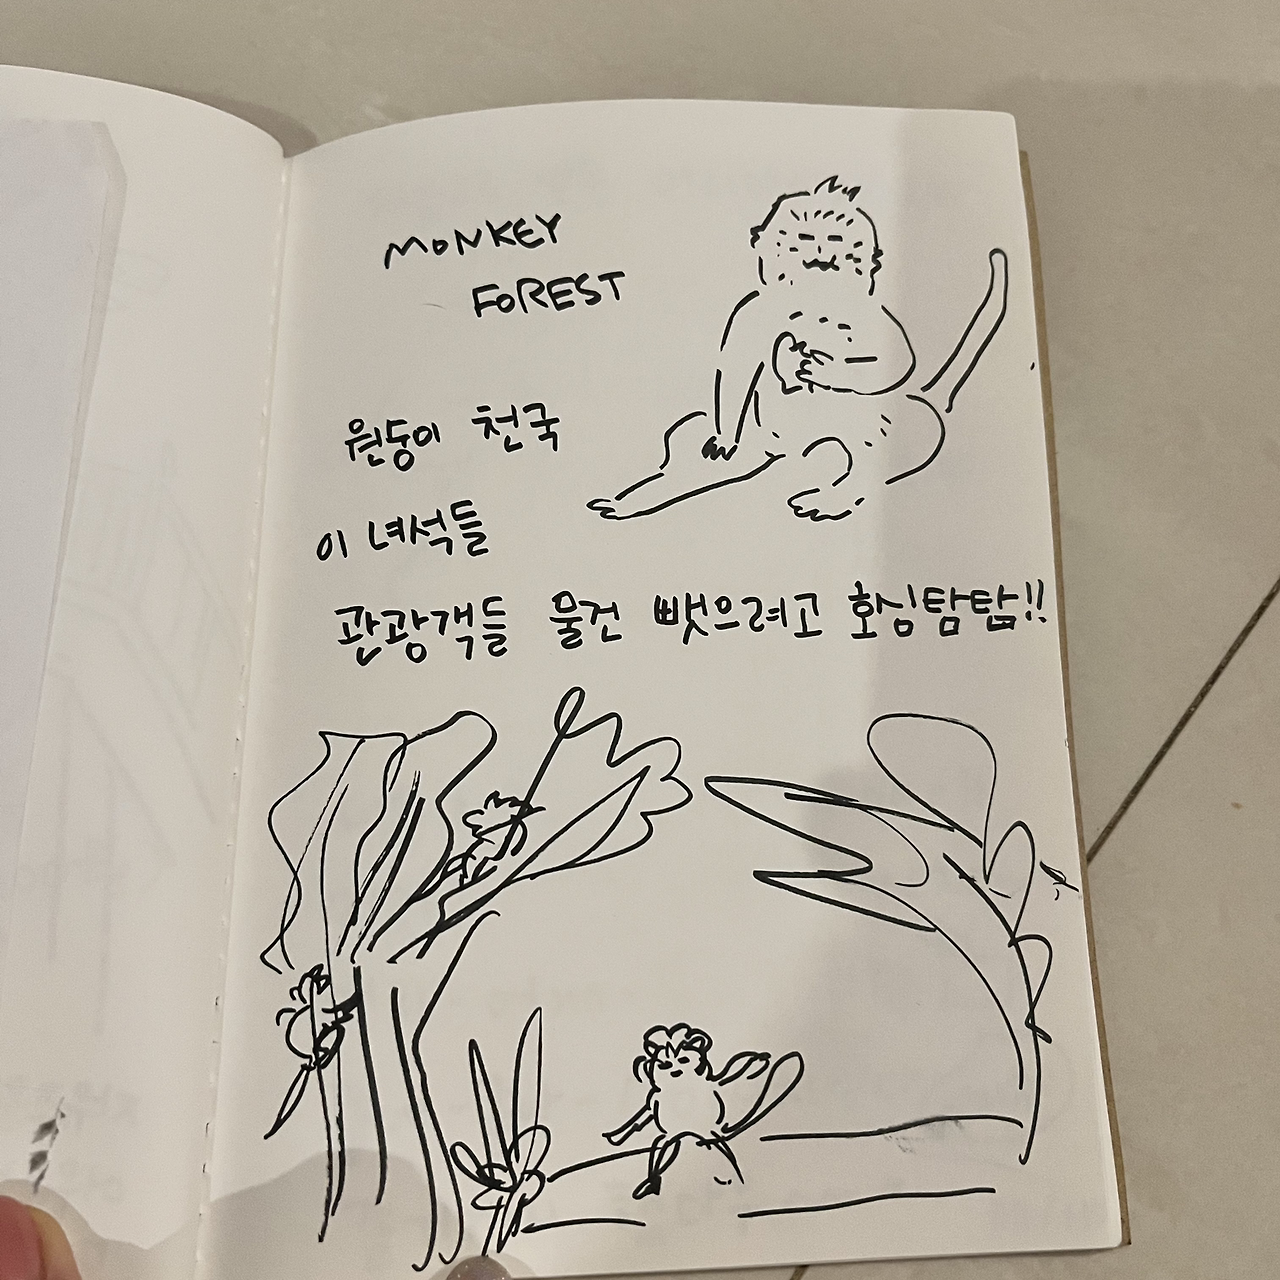 MONKEY
FOREST
원숭이 천국
이 녀석들
관광객들 물건 뺏으려고 호심탐탐!!